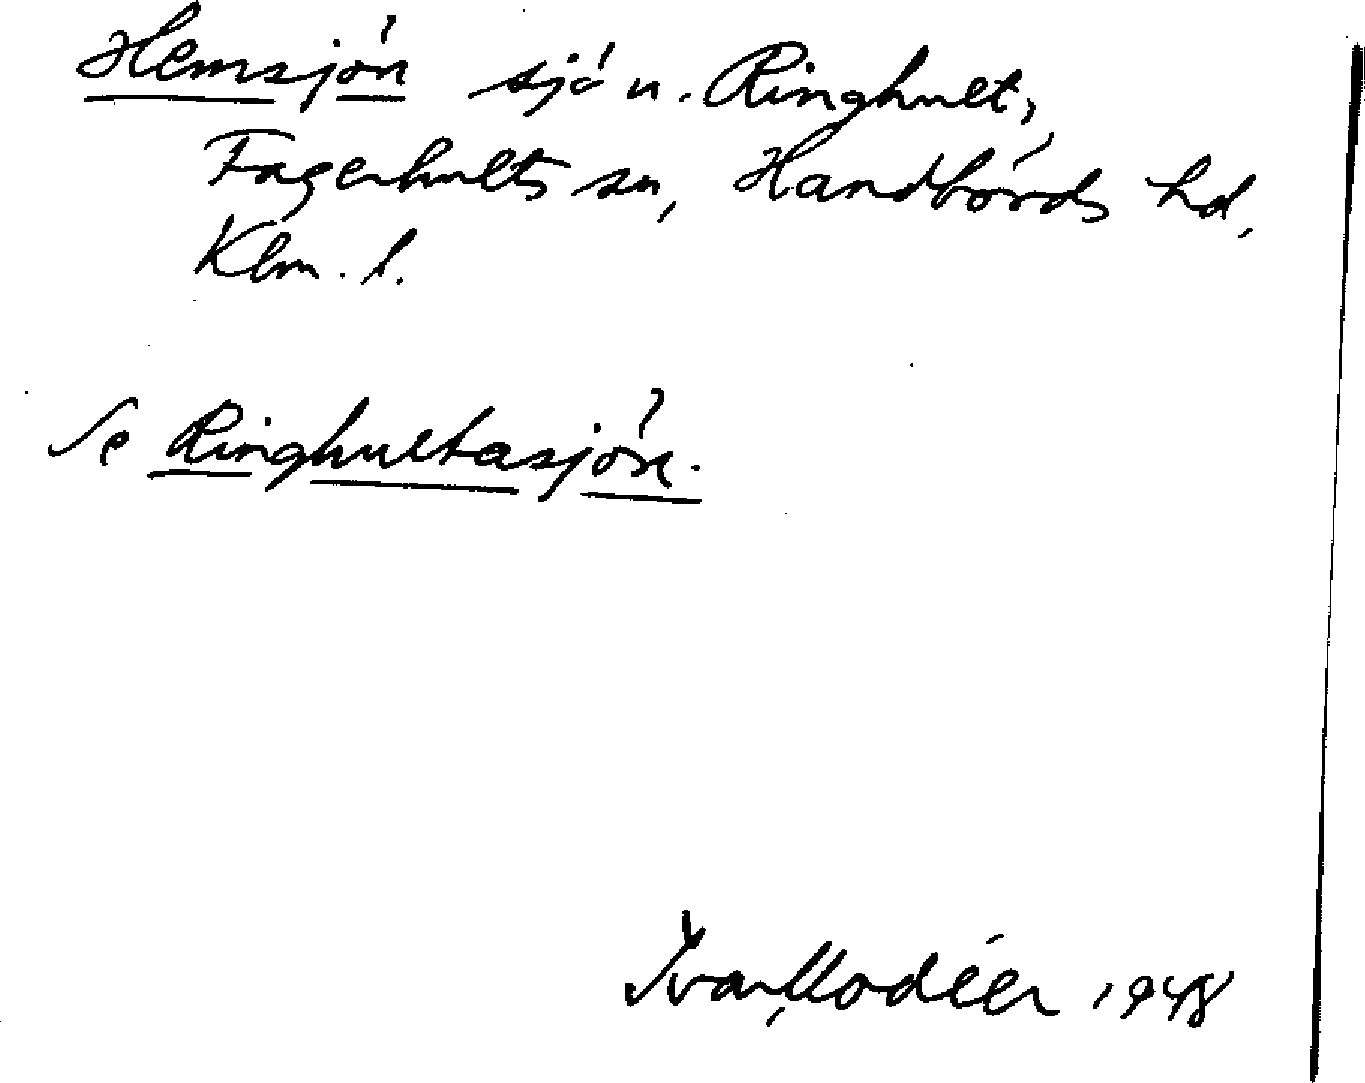 Hemsjön sjö u. Ringhult,
Fagerhults sn, Handbörds hd,
Klm. l.
Se Ringhultasjön.
Ivar Modéer 1948